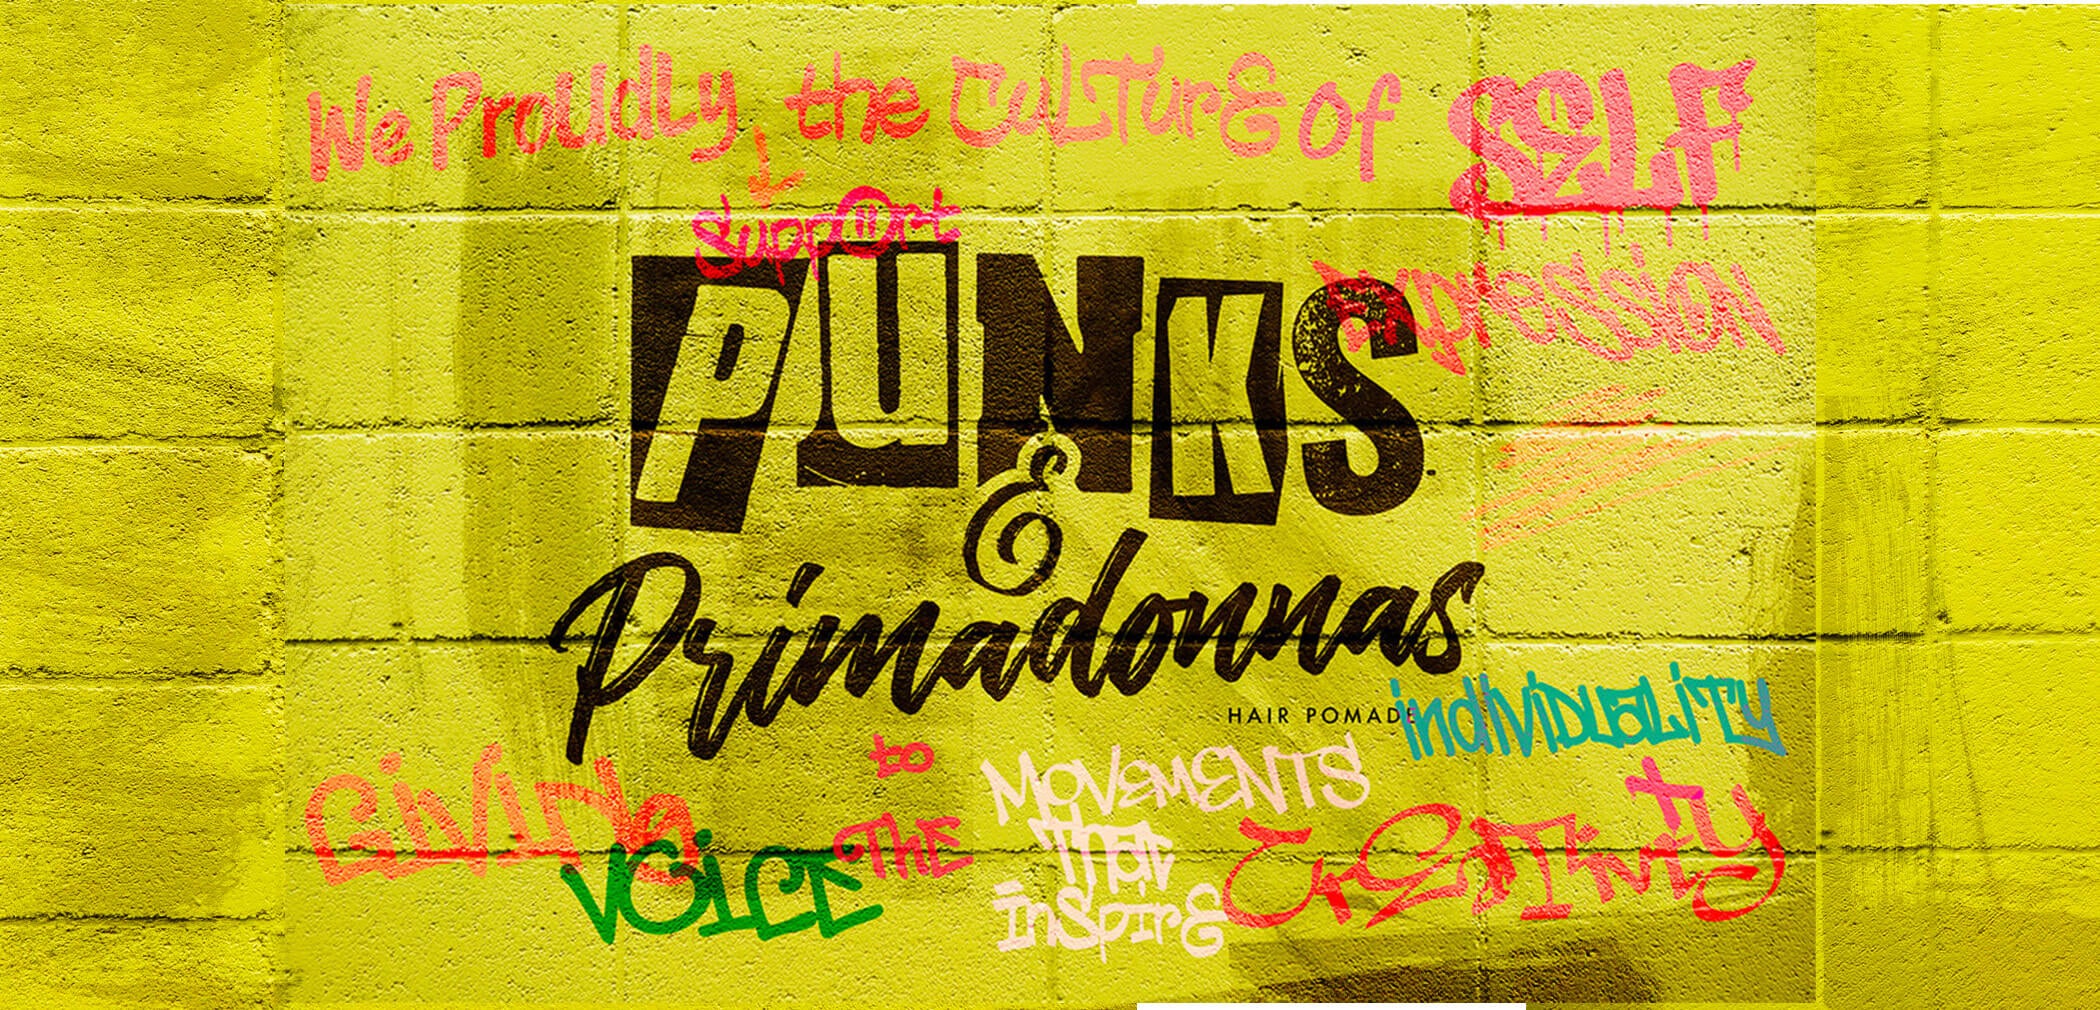 We PRoUdLy the CuLTurE of SELF
Support
Expression
PUNKS
&
Primadonnas
HAIR POMADE
individuality
GiViNG VOiCE to THE MOVEMENTS
That
inSpirE
CrEaTivity